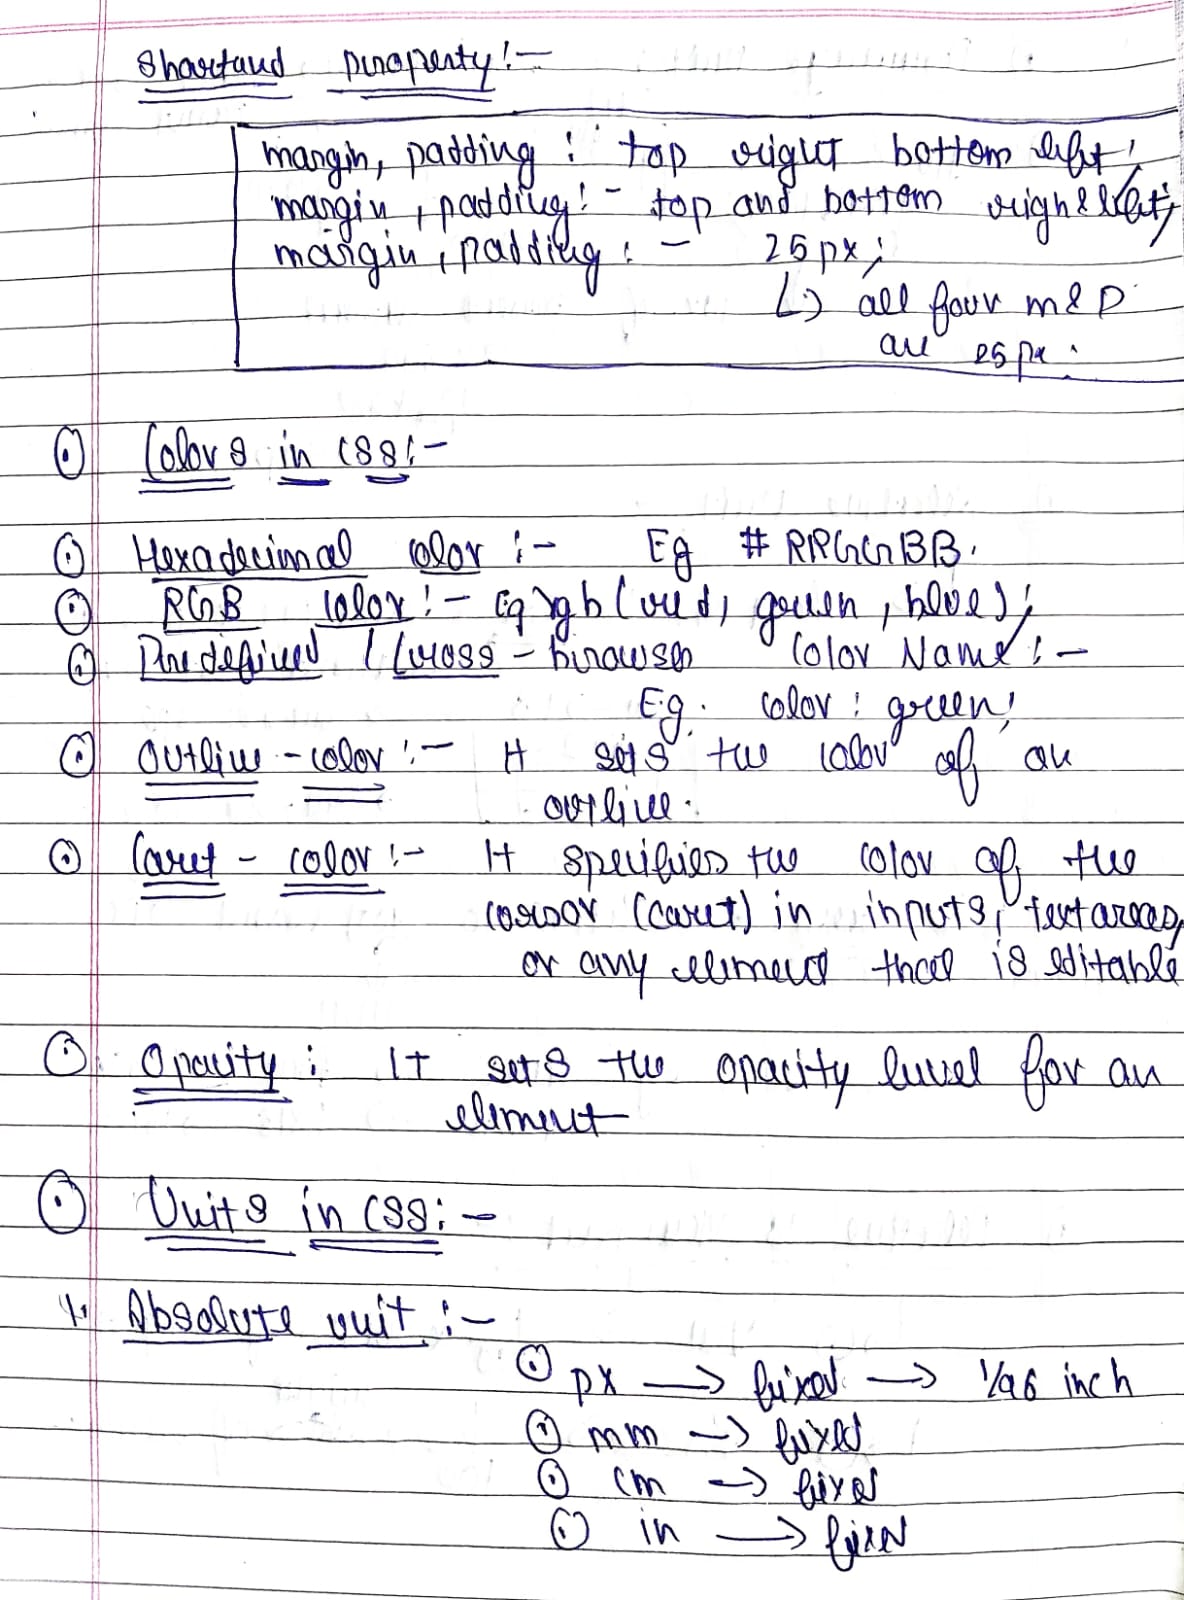 Shorthand property :-
margin, padding : top right bottom left;
margin, padding :- top and bottom right & left;
margin, padding : - 25px;
↳ all four m & p
are 25px.
Colors in CSS :-
Hexadecimal color :- Eg # RRGGBB.
RGB color :- Eg rgb (red, green, blue);
Predefined / Cross - browser Color Name :-
Eg. color : green;
Outline - color :- It sets the color of an
outline.
Caret - color :- It specifies the color of the
cursor (caret) in inputs, textareas,
or any element that is editable
Opacity : It sets the opacity level for an
element
Units in CSS :-
1. Absolute unit :-
px → fixed → 1/96 inch
mm → fixed
cm → fixed
in → fixed